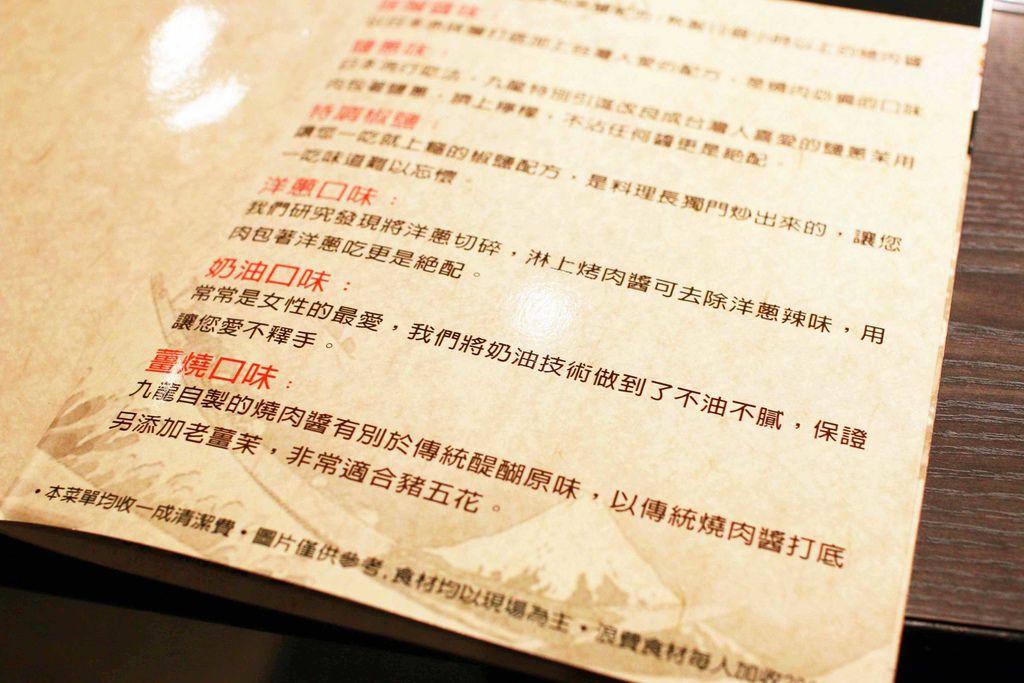 醬味：
以日本原味醬打底加上台灣人愛的配方，是燒肉必備的口味
鹽蔥味：
日本流行吃法，九龍特別引進改良成台灣人喜愛的鹽蔥茉用
肉包著鹽蔥，擠上檸檬，不沾任何醬更是絕配。
特調椒鹽：
讓您一吃就上癮的椒鹽配方，是料理長獨門炒出來的，讓您
一吃味道難以忘懷。
洋蔥口味：
我們研究發現將洋蔥切碎，淋上烤肉醬可去除洋蔥辣味，用
肉包著洋蔥吃更是絕配。
奶油口味：
常常是女性的最愛，我們將奶油技術做到了不油不膩，保證
讓您愛不釋手。
薑燒口味：
九龍自製的燒肉醬有別於傳統醍醐原味，以傳統燒肉醬打底
另添加老薑茉，非常適合豬五花。
•本菜單均收一成清潔費•圖片僅供參考,食材均以現場為主•浪費食材每人加收